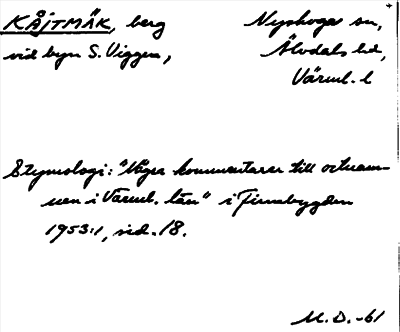 KÅJTMÄK, berg
vid byn S. Viggen,
Nyskoga sn,
Älvdals hd,
Värml. l
Etymologi: "Några kommentarer till ortnam-
nen i Värml. län" i Finnbygden
1953:1, sid. 18.
M.D. -61